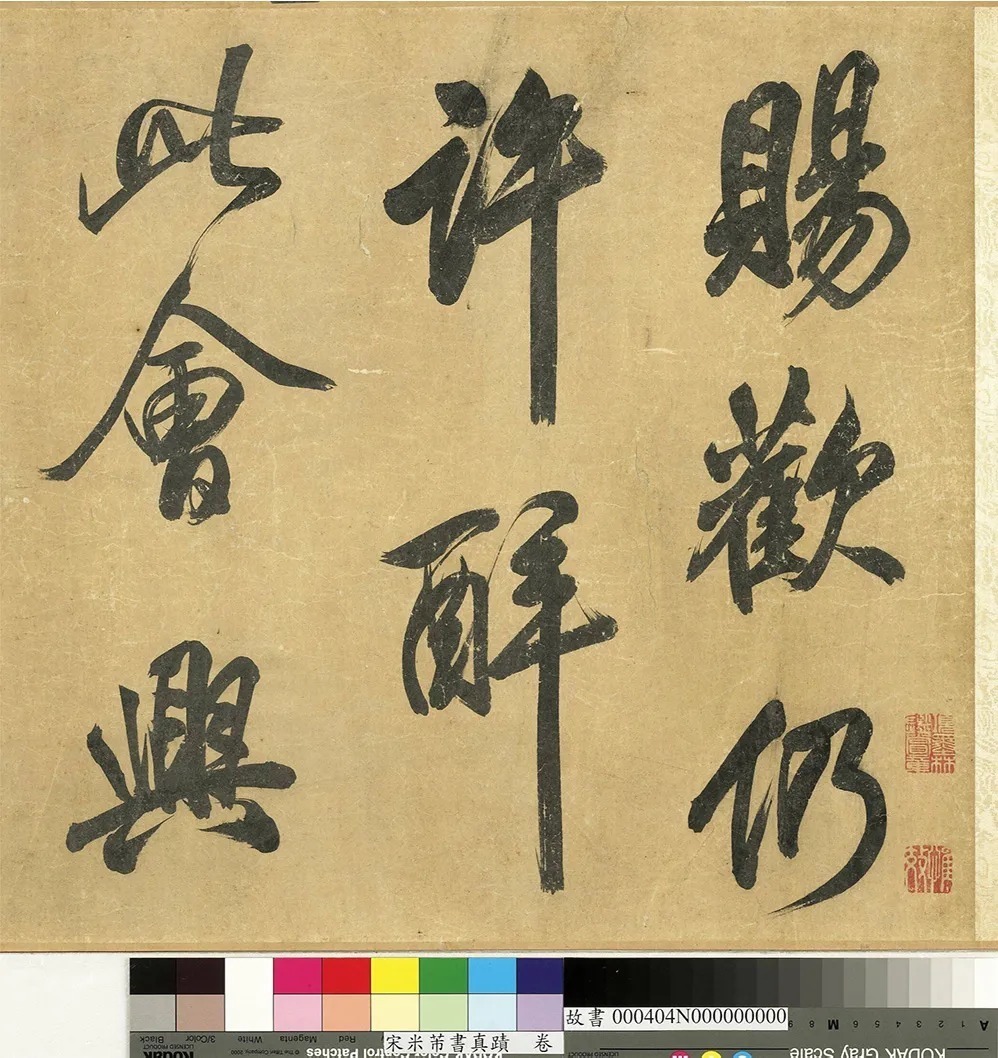 賜歡仍
許醉
此會興
故書 000404N000000000
宋米芾書真蹟 卷
Black
3/Color
White
Magenta
Red
Kodak
KODAK Gray Scale
A 1 2 3 4 5 6 M 8 9